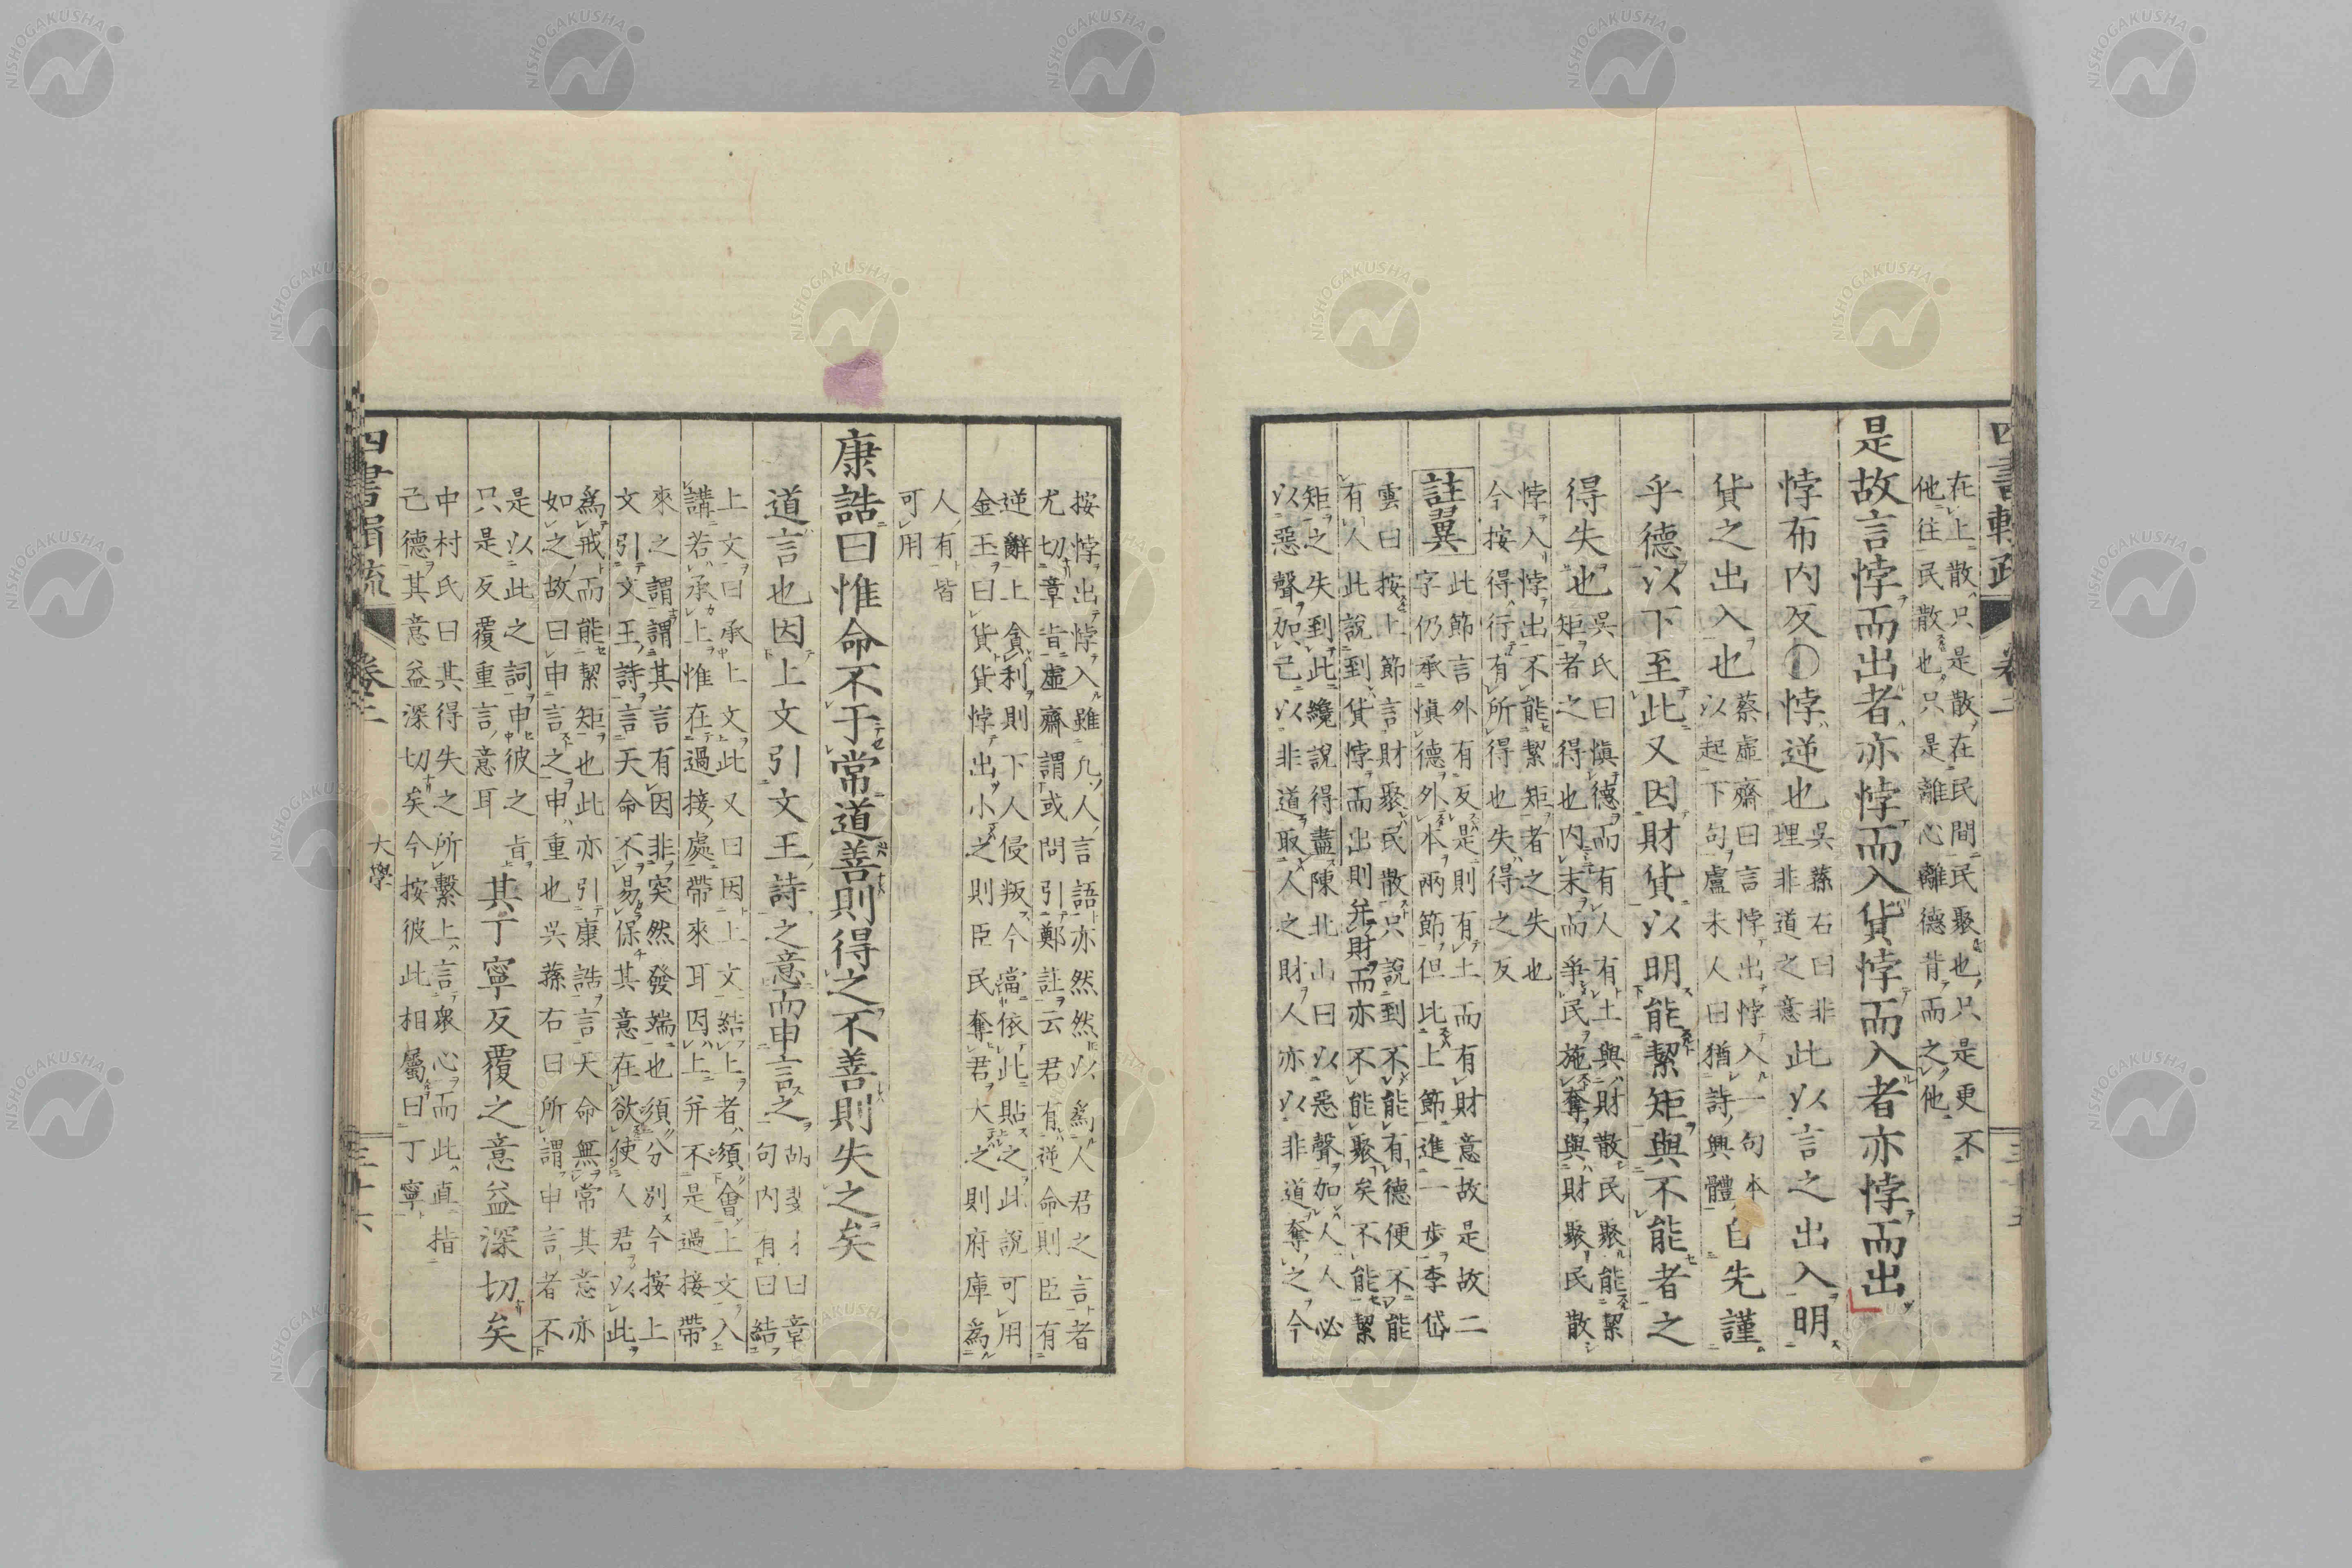 在上散只是散在民間民聚也只是更不
他往民散也只是離心離德背而之他
是故言悖而出者亦悖而入貨悖而入者亦悖而出
悖布内反○悖逆也
吳蓀右曰非
理非道之意
此以言之出入明
貨之出入也
蔡虛齋曰言悖出悖入一句本
以起下句盧未人曰猶詩興體
自先謹
乎德以下至此又因財貨以明能絜矩與不能者之
得失也
吳氏曰愼德而有人有土與財散民聚能絜
矩者之得也内末而爭民施奪與財聚民散
悖入悖出不能絜矩者之失也
今按得行有所得也失得之反
註翼
此節言外有反是則有土而有財意故是故二
字仍承愼德外本兩節但比上節進一步李岱
雲曰按上節言財聚民散只說到不能有德便不能
有人此說到貨悖而出則弁財而亦不能聚矣不能絜
矩之失到此纔說得盡陳北山曰以惡聲加人人必
以惡聲加己以非道取人之財人亦以非道奪之今
按悖出悖入雖凡人言語亦然然以爲人君之言者
尤切章旨虛齋謂或問引鄭註云君有逆命則臣有
逆辭上貪利則下人侵叛今當依此貼之此說可用
金玉曰貨貨悖出小之則臣民奪君大之則府庫爲
人有皆
可用
康誥曰惟命不于常道善則得之不善則失之矣
道言也因上文引文王詩之意而申言之
曰章
句内有曰結
上文曰承上文此又曰因上文結上者須會上文入
講若承上惟在過接處帶來耳因上弁不是過接帶
來之謂謂其言有因非突然發端也須分別今按上
文引文王詩言天命不易保其意在欲使人君以此
爲戒而能絜矩也此亦引康誥言天命無常其意亦
如之故曰申言之申重也吳蓀右曰所謂申言者不
是以此之詞申彼之旨
只是反覆重言意耳
其丁寧反覆之意益深切矣
中村氏曰其得失之所繫上言衆心而此直指
己德其意益深切矣今按彼此相屬曰丁寧
大學